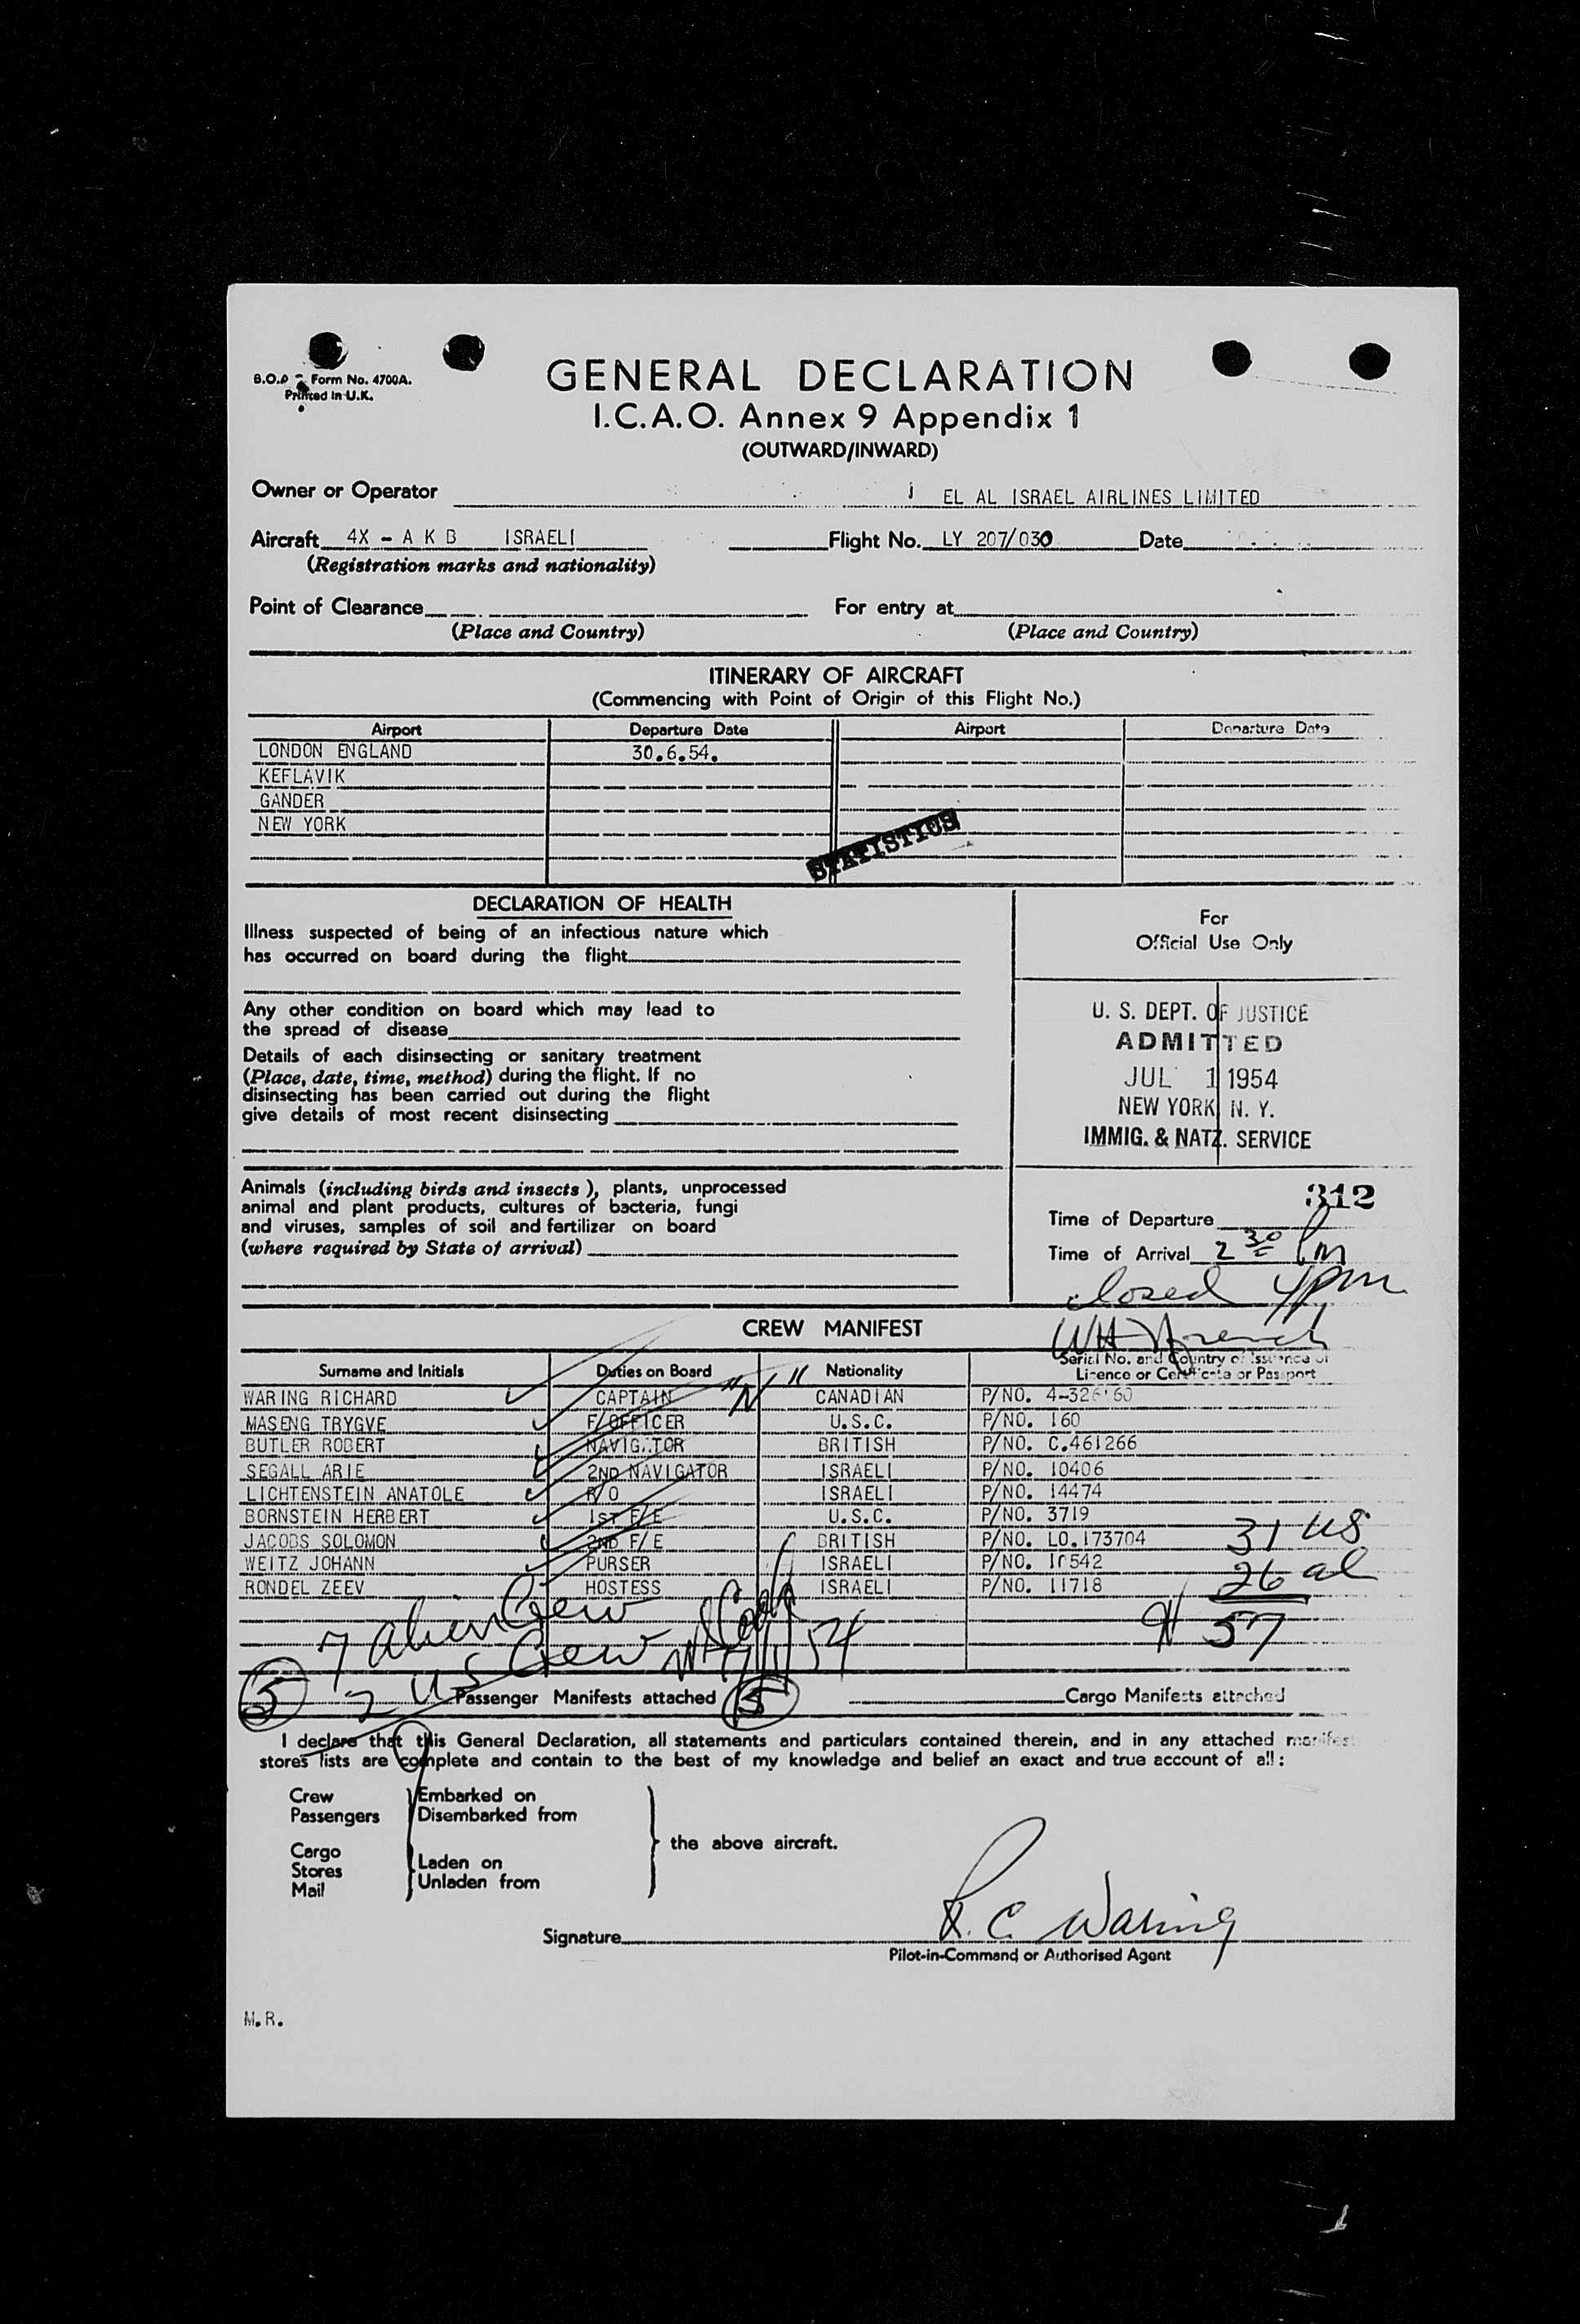 B.O.A Form No. 4700A.
Printed in U.K.
GENERAL DECLARATION
I.C.A.O. Annex 9 Appendix 1
(OUTWARD/INWARD)
Owner or Operator EL AL ISRAEL AIRLINES LIMITED
Aircraft 4X - A K B ISRAELI Flight No. LY 207/030 Date
(Registration marks and nationality)
Point of Clearance For entry at
(Place and Country) (Place and Country)
ITINERARY OF AIRCRAFT
(Commencing with Point of Origin of this Flight No.)
Airport Departure Date Airport Departure Date
LONDON ENGLAND 30.6.54.
KEFLAVIK
GANDER
NEW YORK
STATISTICS
DECLARATION OF HEALTH
Illness suspected of being of an infectious nature which
has occurred on board during the flight
Any other condition on board which may lead to
the spread of disease
Details of each disinsecting or sanitary treatment
(Place, date, time, method) during the flight. If no
disinsecting has been carried out during the flight
give details of most recent disinsecting
Animals (including birds and insects), plants, unprocessed
animal and plant products, cultures of bacteria, fungi
and viruses, samples of soil and fertilizer on board
(where required by State of arrival)
For
Official Use Only
U. S. DEPT. OF JUSTICE
ADMITTED
JUL 1 1954
NEW YORK, N. Y.
IMMIG. & NATZ. SERVICE
312
Time of Departure
Time of Arrival 2 30 Pm
closed 4pm
CREW MANIFEST
Surname and Initials Duties on Board Nationality Serial No. and Country of Issuance of
Licence or Certificate or Passport
WARING RICHARD CAPTAIN CANADIAN P/NO.
MASENG TRYGVE F/OFFICER U.S.C. P/NO. 160
BUTLER ROBERT NAVIGATOR BRITISH P/NO. C.461266
SEGALL ARIE 2ND NAVIGATOR ISRAELI P/NO. 10406
LICHTENSTEIN ANATOLE R/O ISRAELI P/NO. 14474
BORNSTEIN HERBERT 1ST F/E U.S.C. P/NO. 3719
JACOBS SOLOMON 2ND F/E BRITISH P/NO. LO.173704
WEITZ JOHANN PURSER ISRAELI P/NO.
RONDEL ZEEV HOSTESS ISRAELI P/NO. 11718
31 US
26 al
57
7 alien Crew
2 US Crew
5 Passenger Manifests attached 5 Cargo Manifests attached
I declare that this General Declaration, all statements and particulars contained therein, and in any attached manifest
stores lists are complete and contain to the best of my knowledge and belief an exact and true account of all:
Crew Embarked on
Passengers Disembarked from
the above aircraft.
Cargo
Stores Laden on
Mail Unladen from
Signature R. C. Waring
Pilot-in-Command or Authorised Agent
M.R.